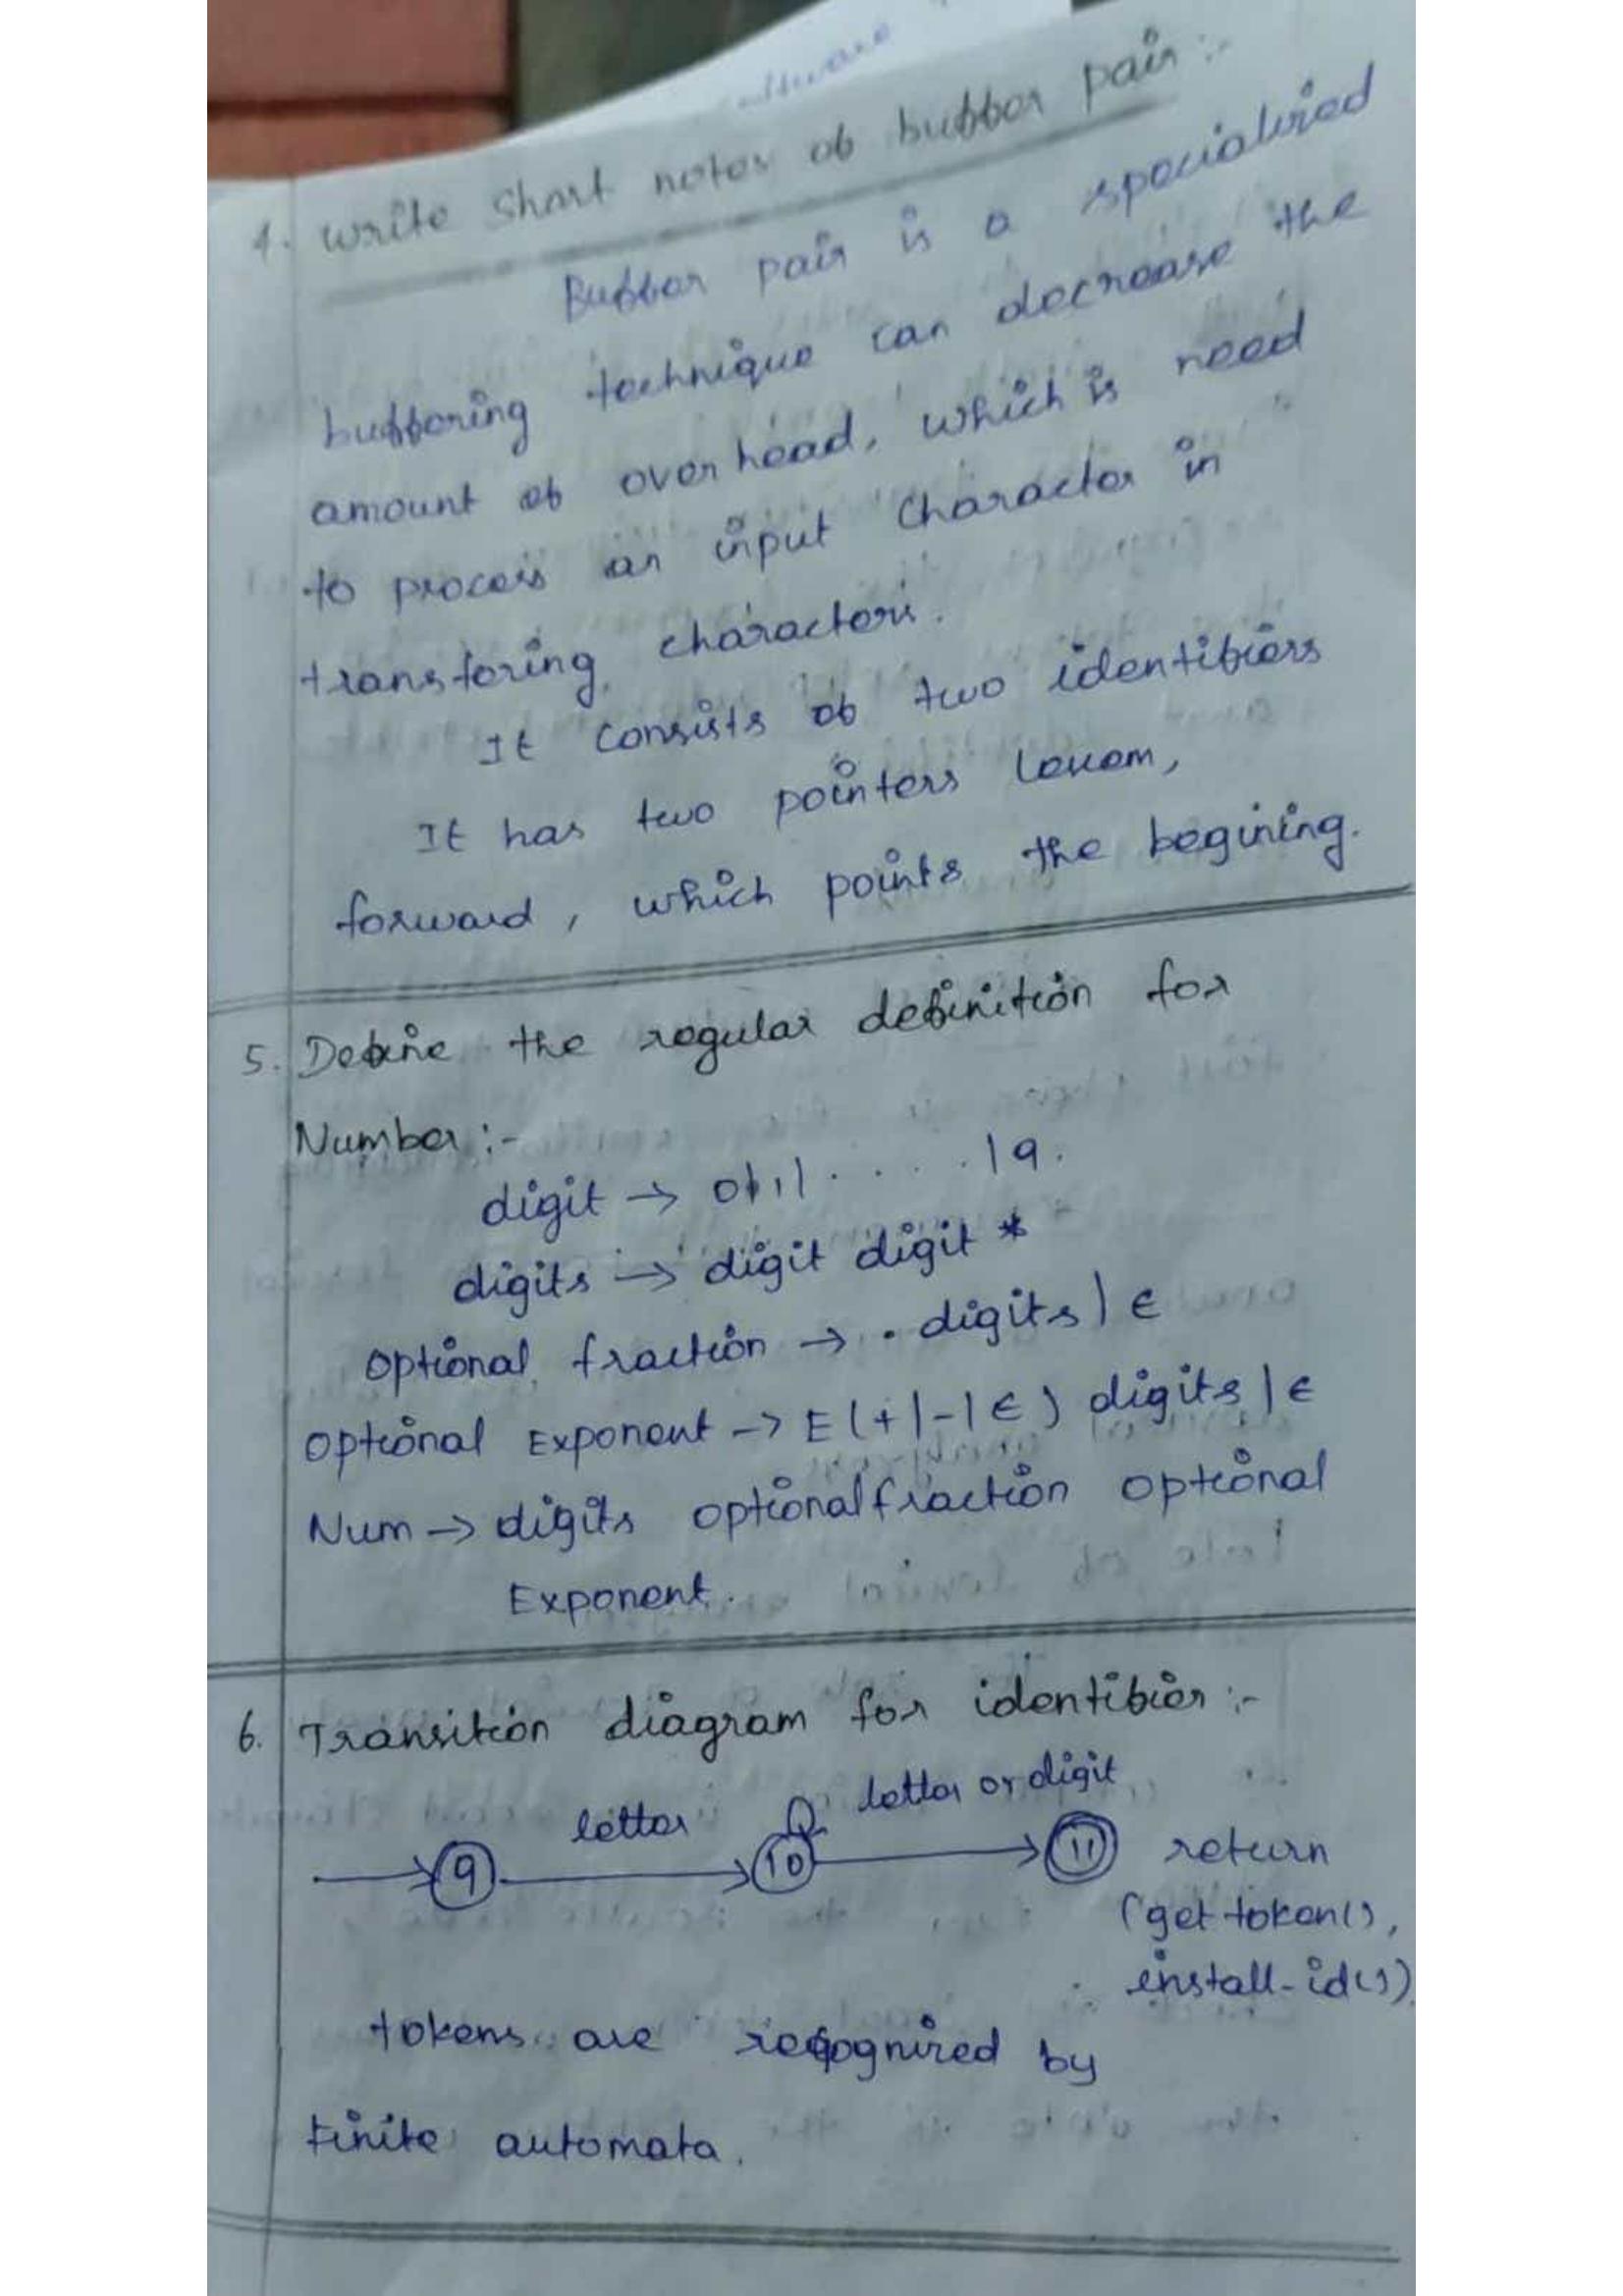 4. Write short notes of buffer pair :-
Buffer pair is a specialized
buffering technique can decrease the
amount of overhead, which is need
to process an input character in
transfering characters.
It consists of two identifiers
It has two pointers lexem,
forward, which points the begining.
5. Define the regular definition for
Number :-
digit → 0|1| . . . . . |9.
digits → digit digit *
Optional fraction → . digits | ∈
Optional Exponent → E(+|-|∈) digits | ∈
Num → digits optionalfraction optional
Exponent.
6. Transition diagram for identifier :-
letter letter or digit
9 10 11 return
(get token(),
install-id())
tokens are recognized by
Finite automata.